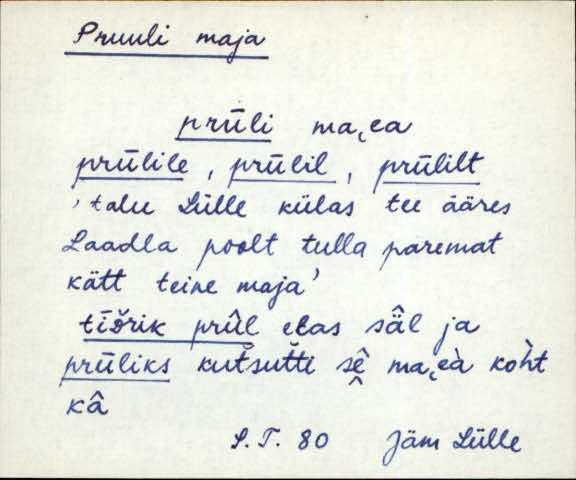 Pruuli maja
prūli ma̮ɛa
prūlile, prūlil, prūlilt
'talu Lülle külas tee ääres
Laadla poolt tulla paremat
kätt teine maja'
tīə̆rik prûl elas sä̂l ja
prūliks kut̆sut̆ti sê̬ ma̮ɛà kòht
kâ
S.T. 80 Jäm Lülle